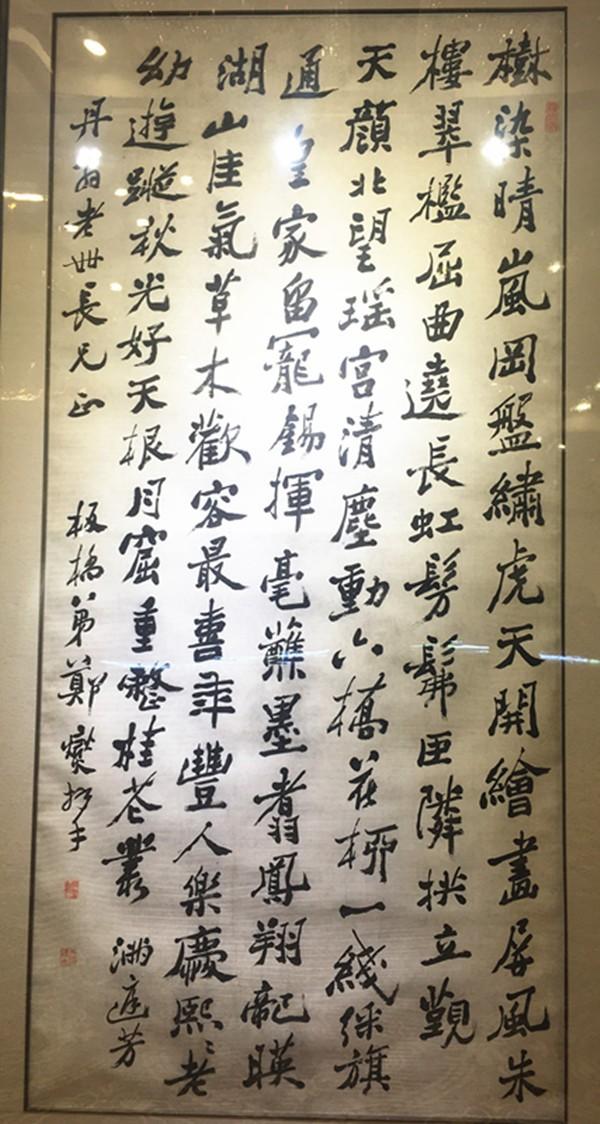 樹染晴嵐岡盤繡虎天開繪畫屏風朱
樓翠檻屈曲遶長虹髣髴臣隣拱立觀
天顔北望瑶宮清塵動六橋花柳一綫綵旗
通皇家留寵錫揮毫蘸墨翥鳳翔龍暎
湖山佳氣草木歡容最喜年豐人樂慶熙〻老
幼遊蹤秋光好天根月窟重整桂花叢 滿庭芳
丹翁老世長兄正 板橋弟鄭燮